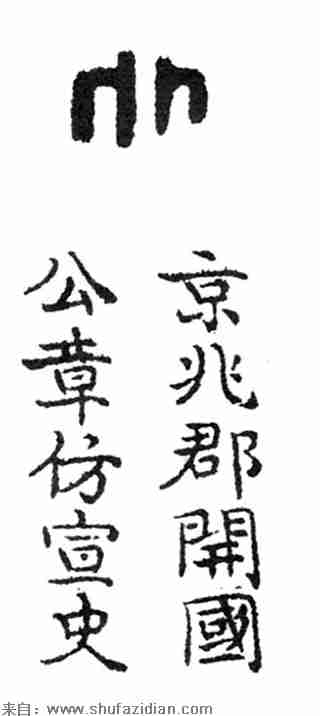 京兆郡開國
公章仿宣史
来自：www.shufazidian.com